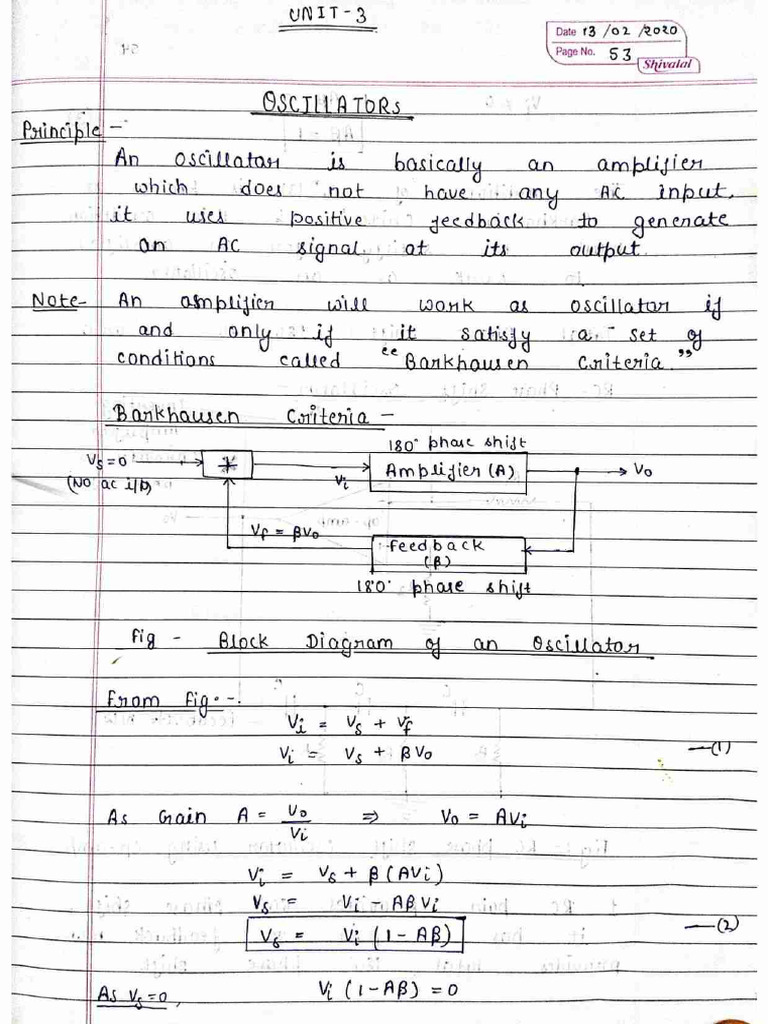 UNIT-3
Date 13/02/2020
Page No. 53
Shivalal
OSCILLATORs
Principle -
An oscillator is basically an amplifier
which does not have any AC input,
it uses positive feedback to generate
an AC signal at its output.
Note- An amplifier will work as oscillator if
and only if it satisfy a set of
conditions called "Barkhausen Criteria."
Barkhausen Criteria -
180° phase shift
Vs=0
Amplifier (A)
Vo
(No ac i/p)
Vi
Vf = βVo
feedback
(β)
180° phase shift
Fig - Block Diagram of an Oscillator
From Fig. -
Vi = Vs + Vf
Vi = Vs + βVo —(1)
As Gain A = Vo/Vi ⇒ Vo = AVi
Vi = Vs + β(AVi)
Vs = Vi - AβVi
Vs = Vi (1 - Aβ) —(2)
As Vs=0, Vi (1-Aβ) = 0